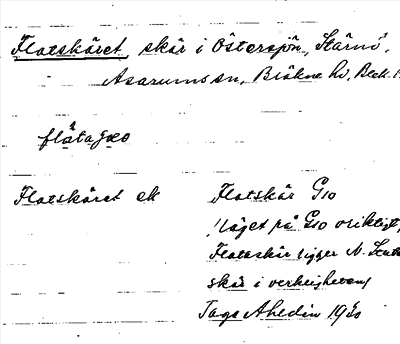 Flatskäret, skär i Östersjön, Stärnö,
Asarums sn, Bräkne hd, Blek. l.
flåtaʃæo
Flatskäret ek
Flatskär G10
läget på G10 oriktigt,
Flataskär ligger N.
skär i verkligheten
Tage Ahedin 19